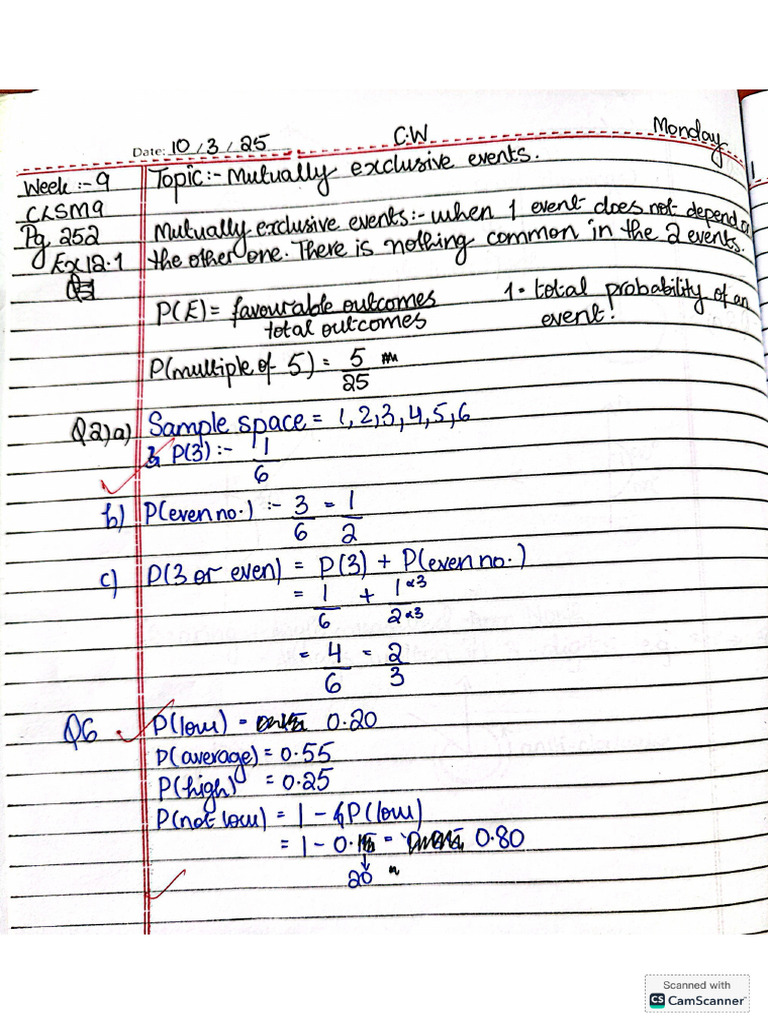 C.W. Monday
Date: 10/3/25
Week :- 9 Topic:- Mutually exclusive events.
CLSM9
Pg 252 Mutually exclusive events:- when 1 event does not depend on
Ex 12.1 the other one. There is nothing common in the 2 events.
P(E) = favourable outcomes 1 = total probability of an
total outcomes event.
P(multiple of 5) = 5
25
Q2)a) Sample space = 1, 2, 3, 4, 5, 6
P(3) :- 1
6
b) P(even no.) :- 3 = 1
6 2
c) P(3 or even) = P(3) + P(even no.)
= 1 + 1 ×3
6 2 ×3
= 4 = 2
6 3
Q6 P(low) = 0.20
P(average) = 0.55
P(high) = 0.25
P(not low) = 1 - P(low)
= 1 - 0. = 0.80
20
Scanned with
CS CamScanner